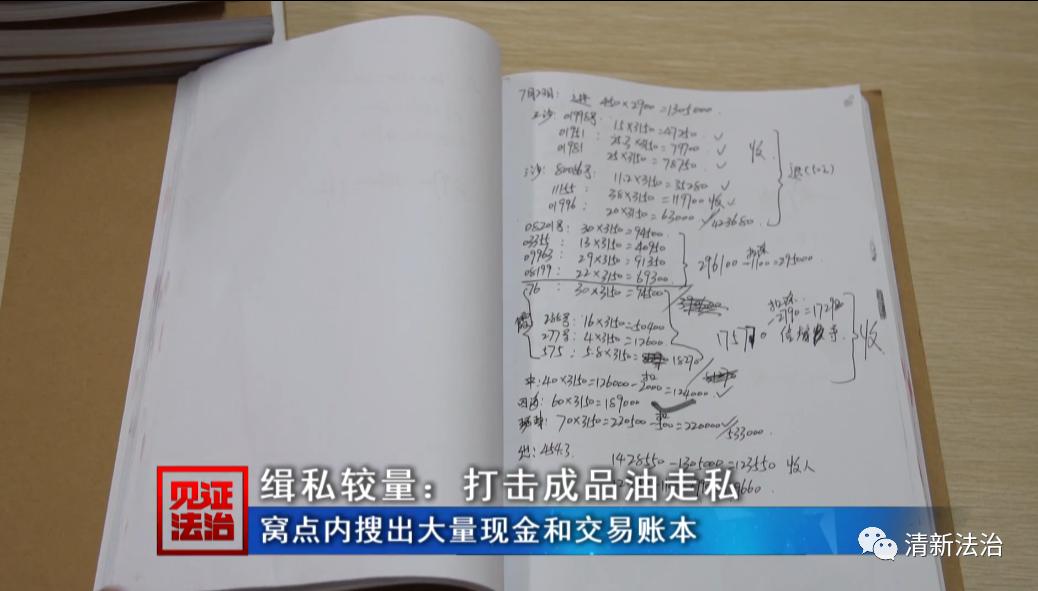 450×2900=1305000
01998号 15×3150=47250 ✓
01951: 25.3×3150=79700 ✓
01981 25×3150=78750 ✓
收
11.2×3150=35280 ✓
11155: 38×3150=119700 收 ✓
01996: 20×3150=63000 /423680
08201号: 30×3150=94500
03355: 13×3150=40950
09963: 29×3150=91350
08199: 22×3150=69300
296100 -1100=295000
76: 30×3150=94500
286号: 16×3150=50400
277号: 4×3150=12600
575: 5.8×3150= 18270
收
40×3150=126000- 2000=124000 ✓
60×3150=189000
70×3150=220500 -500=220000 ✓ /533000
454.3
1428550-1305000=123550 收入
见证
法治
缉私较量:打击成品油走私
窝点内搜出大量现金和交易账本
清新法治